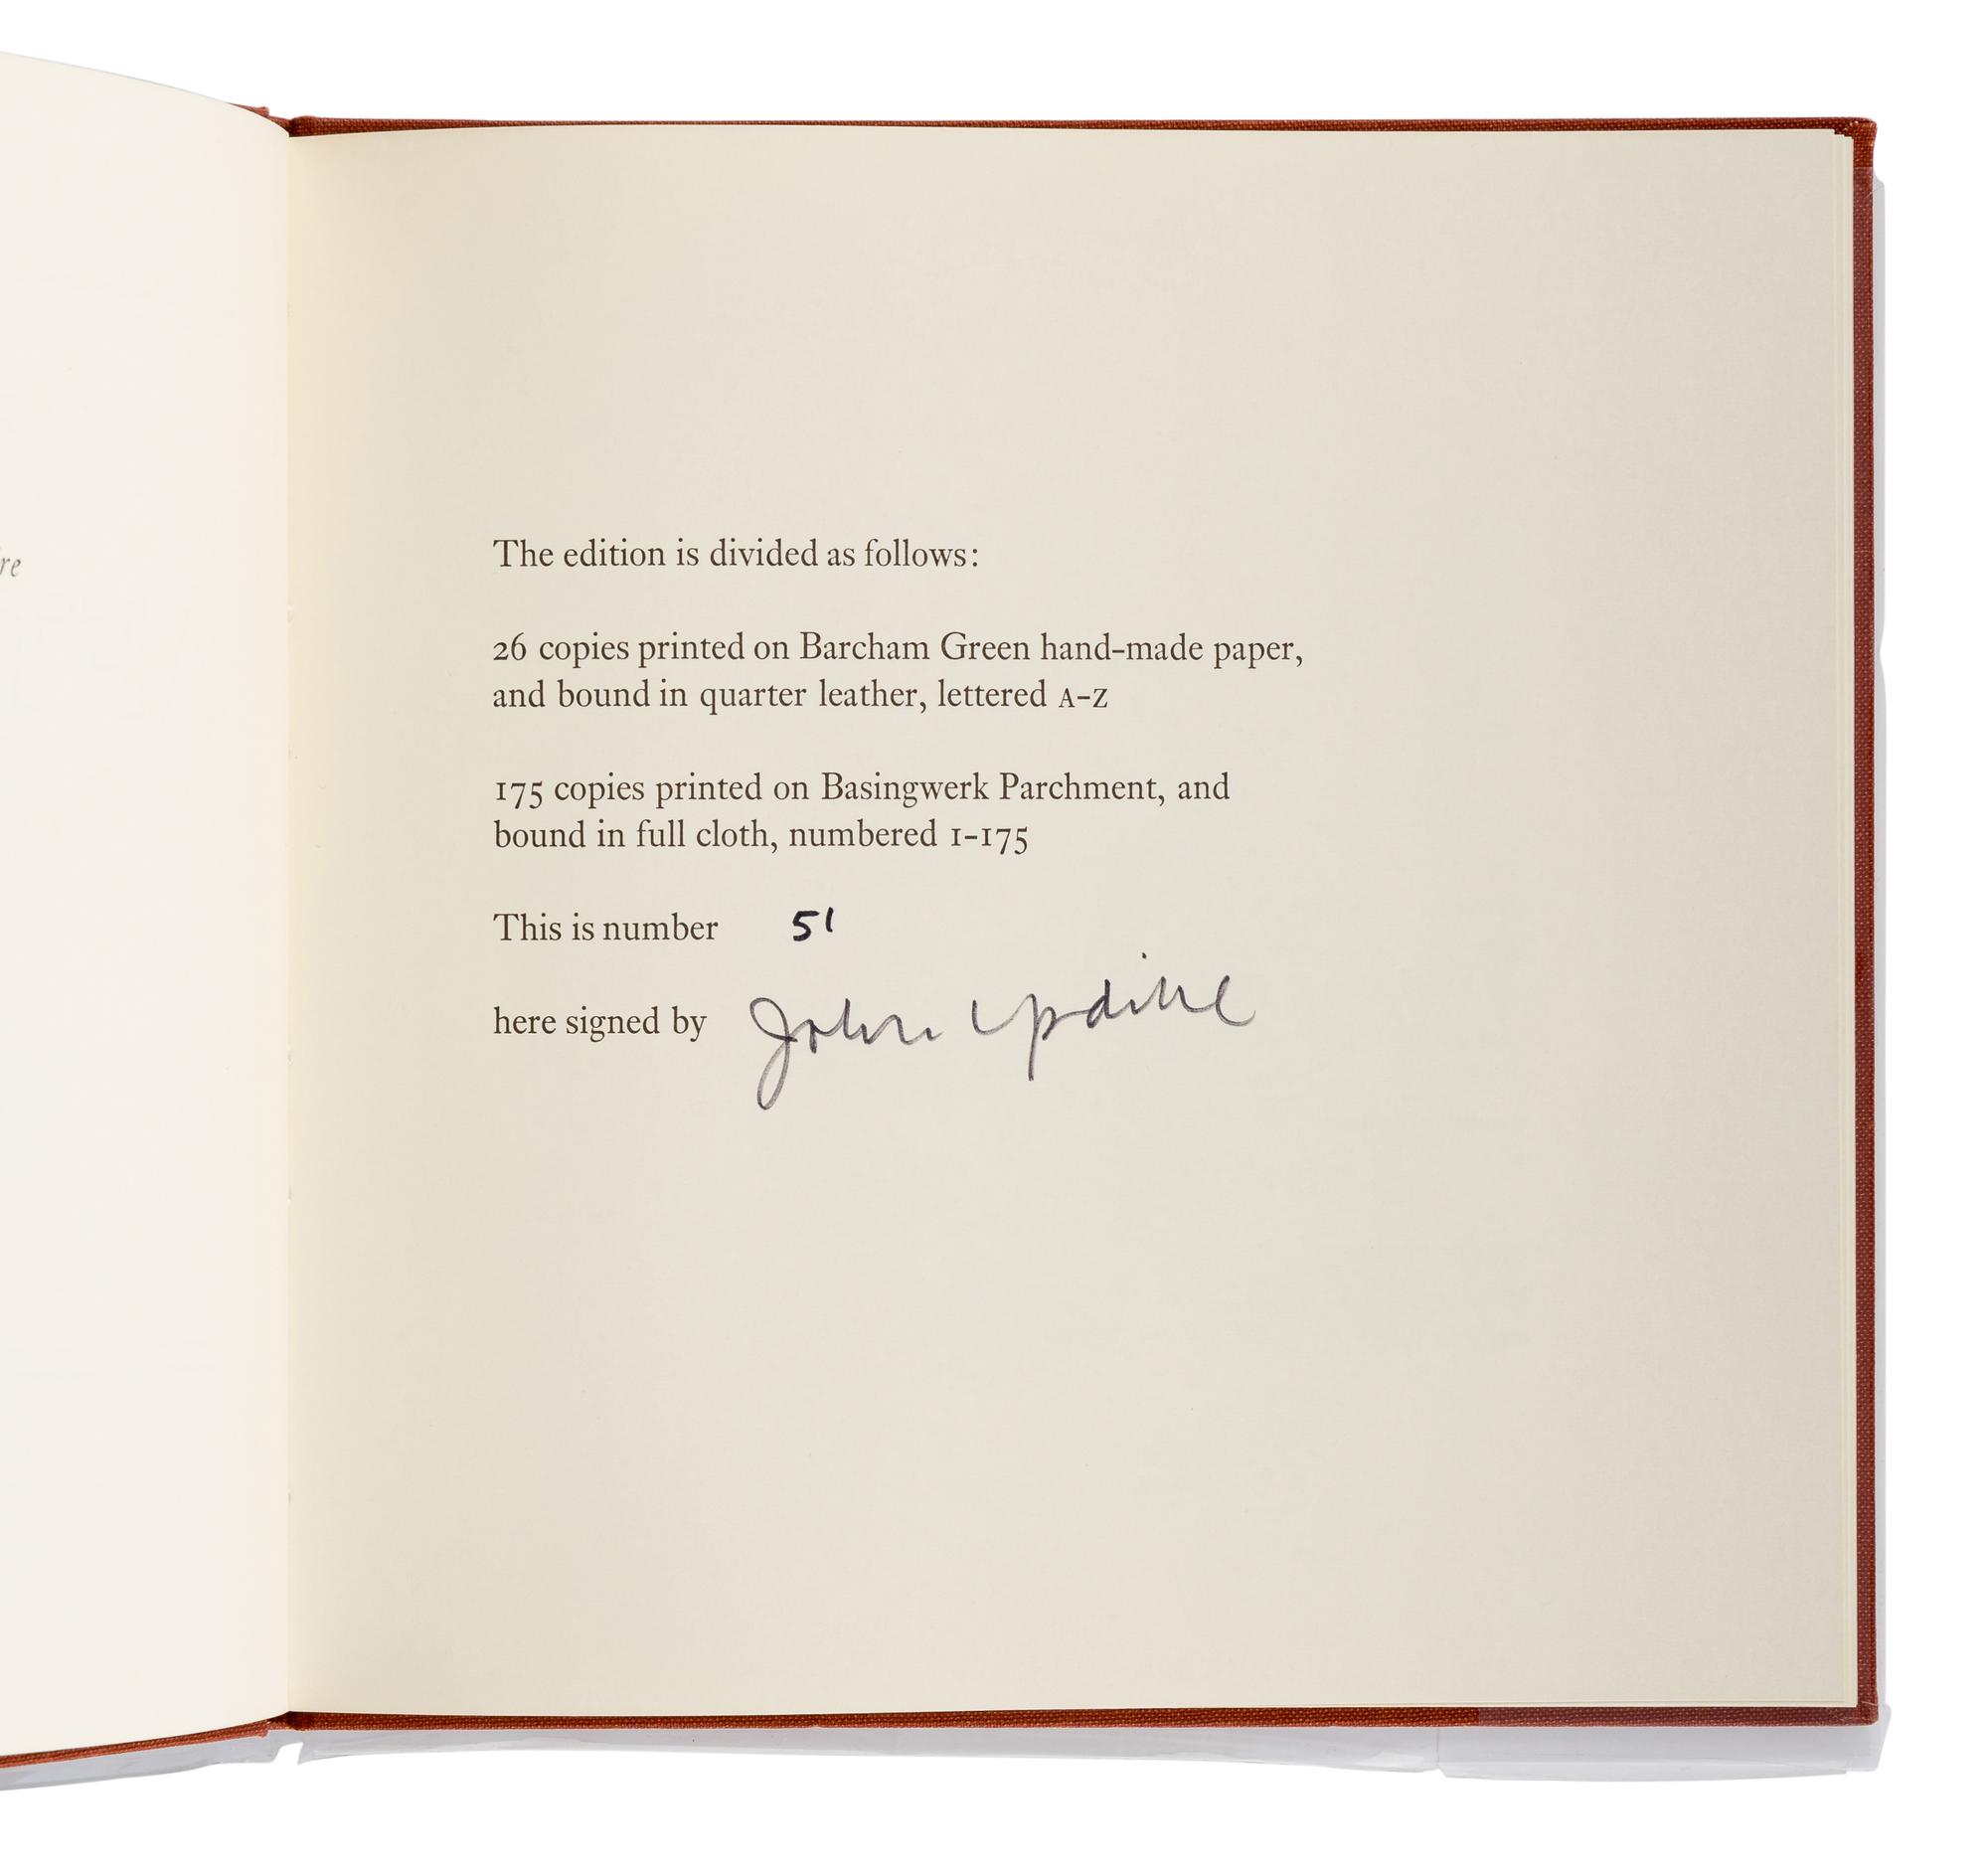 The edition is divided as follows:
26 copies printed on Barcham Green hand-made paper,
and bound in quarter leather, lettered A-Z
175 copies printed on Basingwerk Parchment, and
bound in full cloth, numbered 1-175
This is number 51
here signed by John Updike